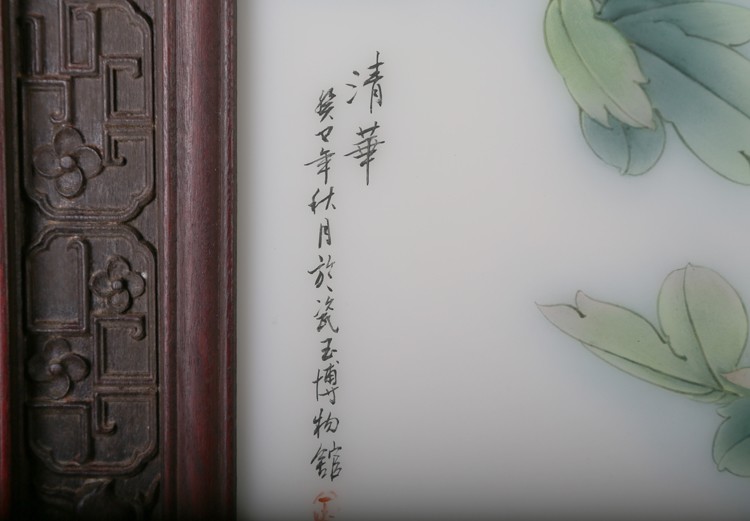 清華
癸巳年秋月於瓷玉博物館